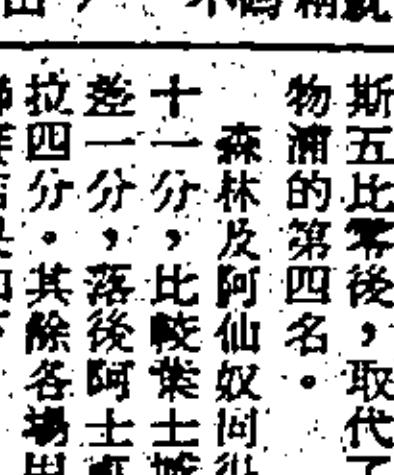 斯五比零後，取代
物浦的第四名。
森林及阿仙奴同
十一分，比較葉士
差一分，落後阿士
拉四分。其除各場